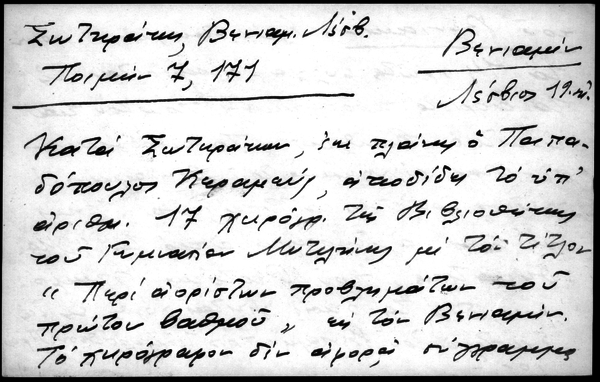 Σωτηράκης, Βενιαμ. Λέσβ.
Ποιμήν 7, 171
Βενιαμίν
Λέσβιος 19.
Κατά Σωτηράκην, ἐκ πλάνης ὁ Παπα-
δόπουλος Κεραμεύς, ἀποδίδει τό ὑπ'
ἀριθμ. 17 χειρόγρ. τῆς Βιβλιοθήκης
τοῦ Γυμνασίου Μυτιλήνης μέ τόν τίτλον
"Περί ἀορίστων προβλημάτων τοῦ
πρώτου βαθμοῦ" εἰς τόν Βενιαμίν.
Τό χειρόγραφον δέν ἀφορᾷ